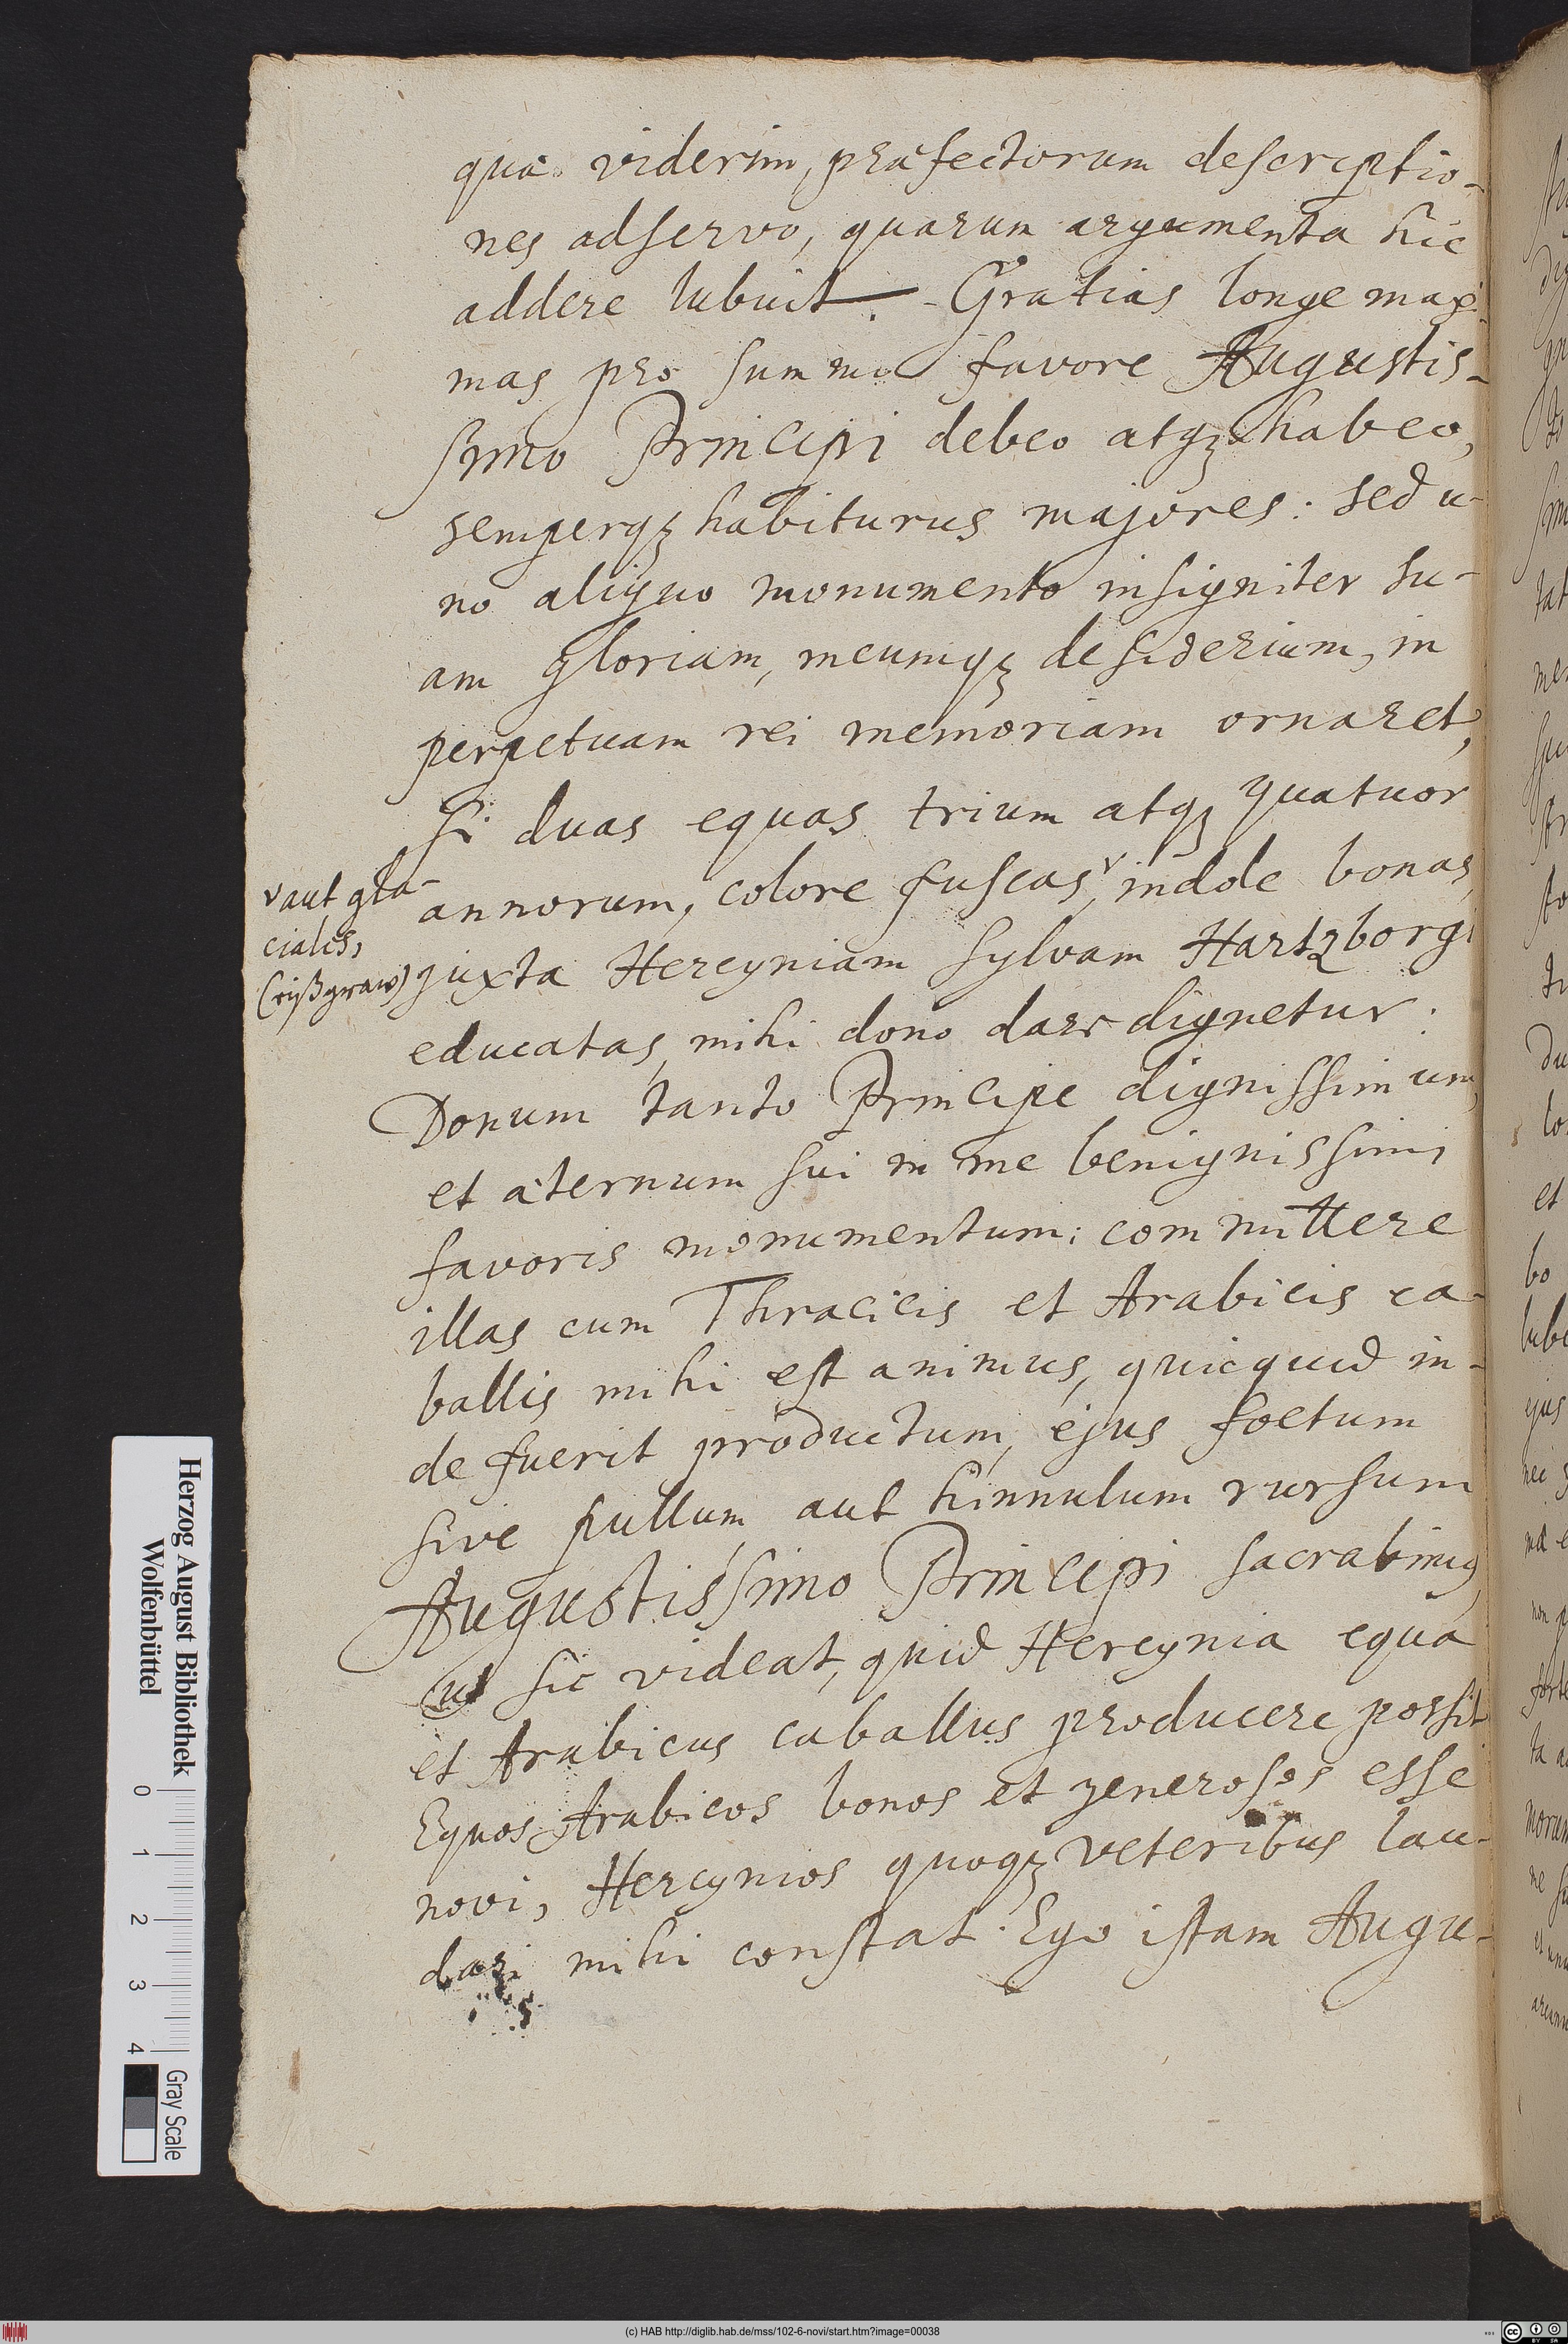 quæ viderim, præfectorum descriptio-
nes adservo, quarum argumenta hic
addere lubuit. Gratias longe maxi-
mas pro summo favore Augustis-
simo Principi debeo atqȝ habeo,
semperqȝ habiturus majores: sed u-
no aliquo monumento insigniter su-
am gloriam, meumqȝ desiderium, in
perpetuam rei memoriam ornaret,
Si duas equas trium atqȝ quatuor
annorum, colore fuscas, indole bonas,
v aut gla-
ciales,
(eißgraw)
juxta Hercyniam sylvam Hartzborgi
educatas, mihi dono dare dignetur:
Donum tanto Principe dignissimum,
et æternum sui in me benignissimi
favoris monumentum: committere
illas cum Thracicis et Arabicis ca-
ballis mihi est animus, quicquid in-
de fuerit productum, ejus foetum
sive pullum, aut hinnulum rursum
Augustissimo Principi sacrabimus,
ut sic videat, quid Hercynia equa
et Arabicus caballus producere possit
Equos Arabicos bonos et generosos esse
novi, Hercynios quoqȝ veteribus lau-
dari mihi constat. Ego istam Augu-
Herzog August Bibliothek
Wolfenbüttel
0 1 2 3 4
Gray Scale
(c) HAB http://diglib.hab.de/mss/102-6-novi/start.htm?image=00038